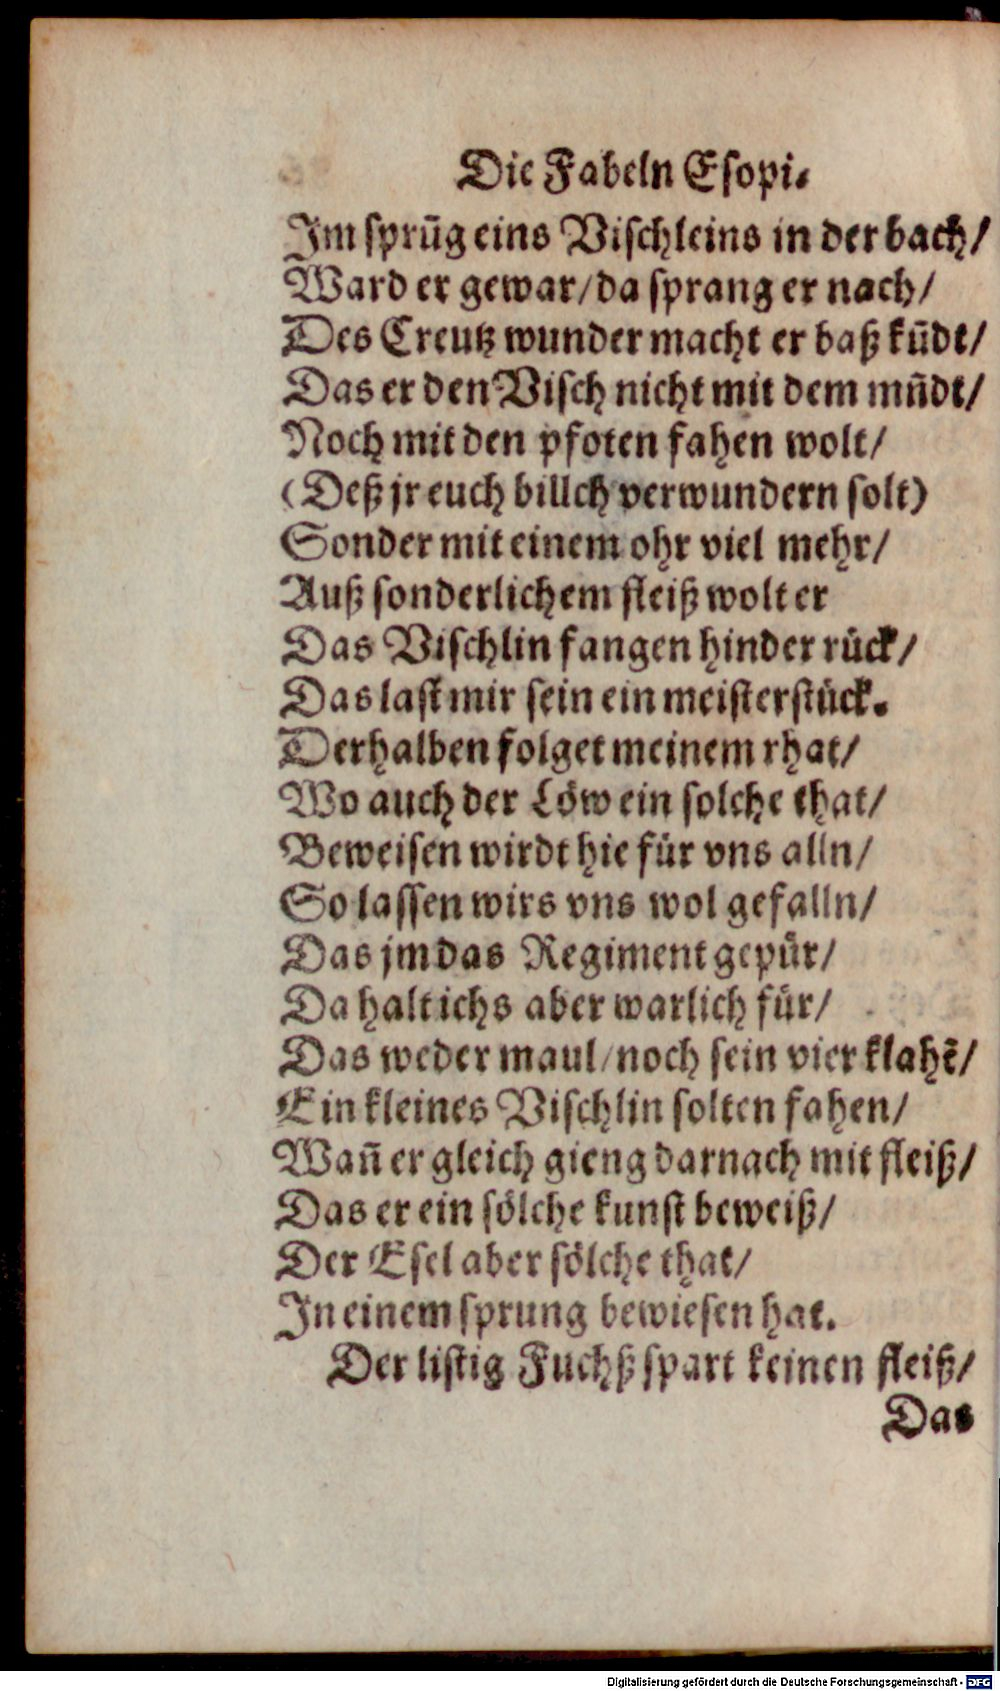 Die Fabeln Esopi.
Im sprūg eins Vischleins in der bach/
Ward er gewar/da sprang er nach/
Des Creutz wunder macht er baß kūdt/
Das er den Visch nicht mit dem mūdt/
Noch mit den pfoten fahen wolt/
(Deß jr euch billch verwundern solt)
Sonder mit einem ohr viel mehr/
Auß sonderlichem fleiß wolt er
Das Vischlin fangen hinder rück/
Das last mir sein ein meisterstück.
Derhalben folget meinem rhat/
Wo auch der Löw ein solche that/
Beweisen wirdt hie für vns alln/
So lassen wirs vns wol gefalln/
Das jm das Regiment gepür/
Da halt ichs aber warlich für/
Das weder maul/noch sein vier klahē/
Ein kleines Vischlin solten fahen/
Wañ er gleich gieng darnach mit fleiß/
Das er ein sölche kunst beweiß/
Der Esel aber sölche that/
In einem sprung bewiesen hat.
Der listig Fuchß spart keinen fleiß/
Das
Digitalisierung gefördert durch die Deutsche Forschungsgemeinschaft - DFG